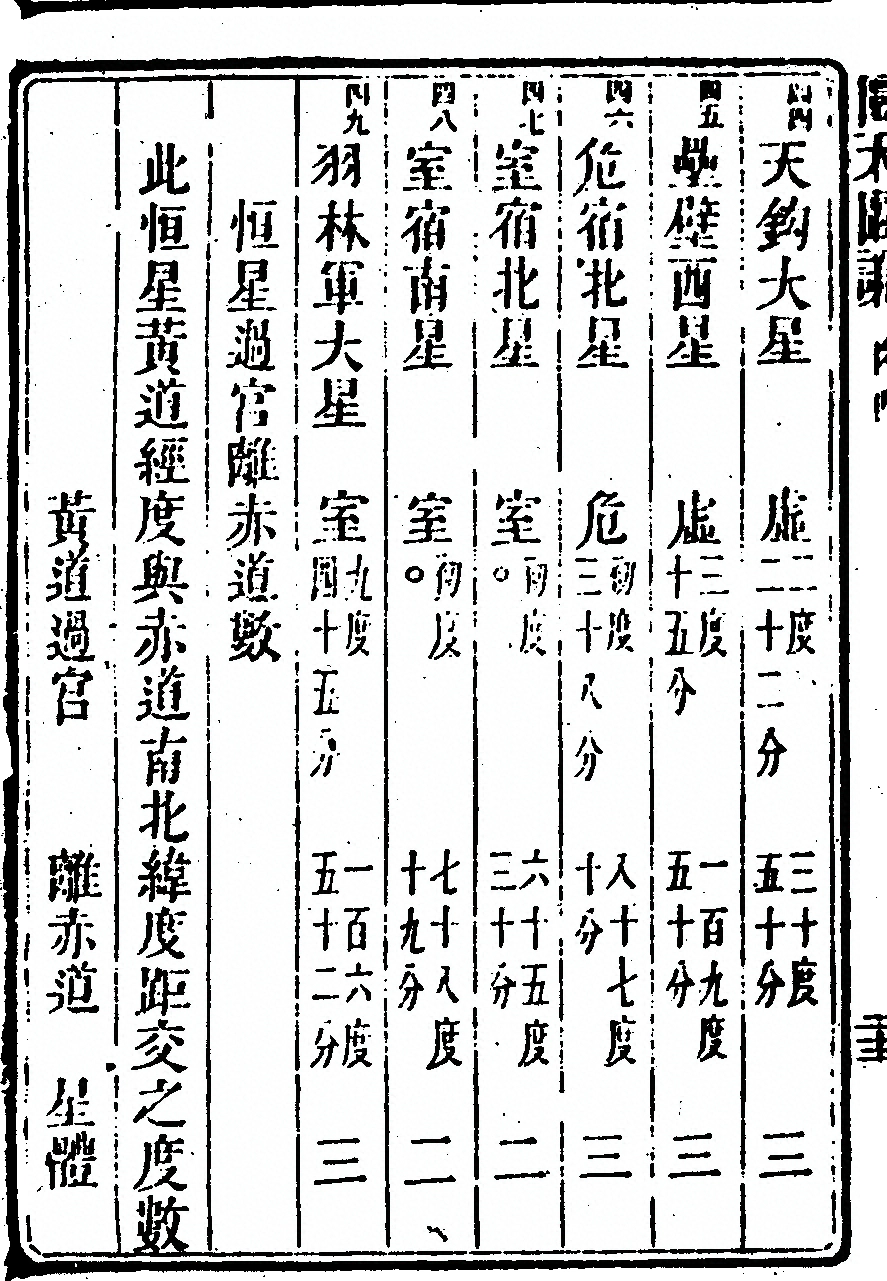 四四 天鈎大星 虛 二度二十二分 三十度五十分 三
四五 壘壁西星 虛 三度十五分 一百九度五十分 三
四六 危宿北星 危 初度三十八分 八十七度十分 三
四七 室宿北星 室 初度〇 六十五度三十分 二
四八 室宿南星 室 初度〇 七十八度十九分 二
四九 羽林軍大星 室 九度四十五分 一百六度五十二分 三
恒星過宮離赤道數
此恒星黃道經度與赤道南北緯度距交之度數
黃道過宮 離赤道 星體